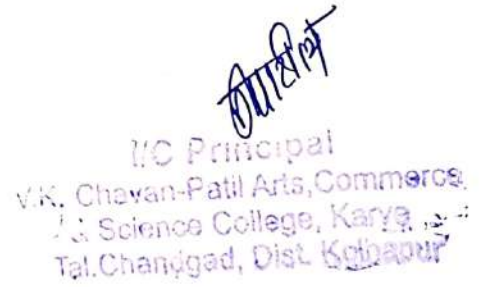 I/C Principal
V.K. Chavan-Patil Arts,Commerce
Science College, Karve
Tal.Chandgad, Dist. Kolhapur